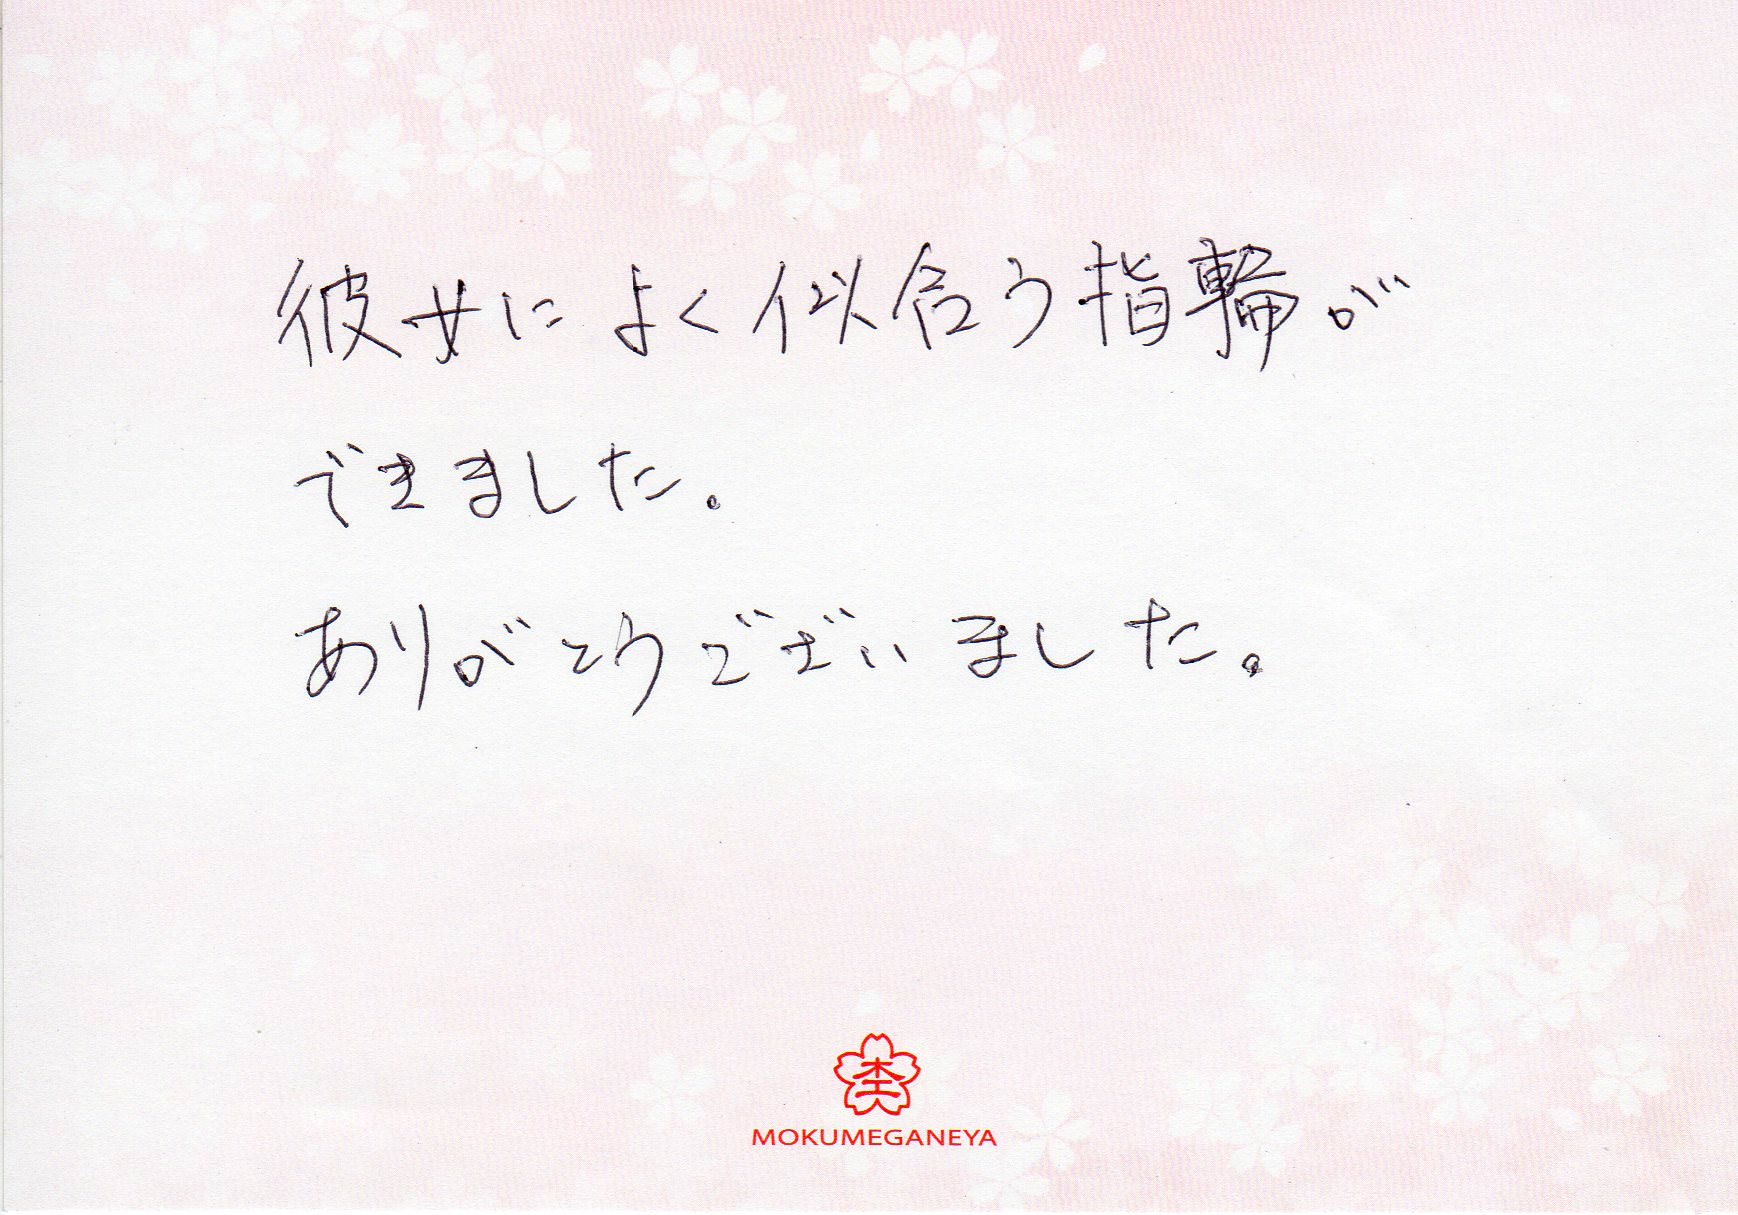 彼女によく似合う指輪が
できました。
ありがとうございました。
MOKUMEGANEYA